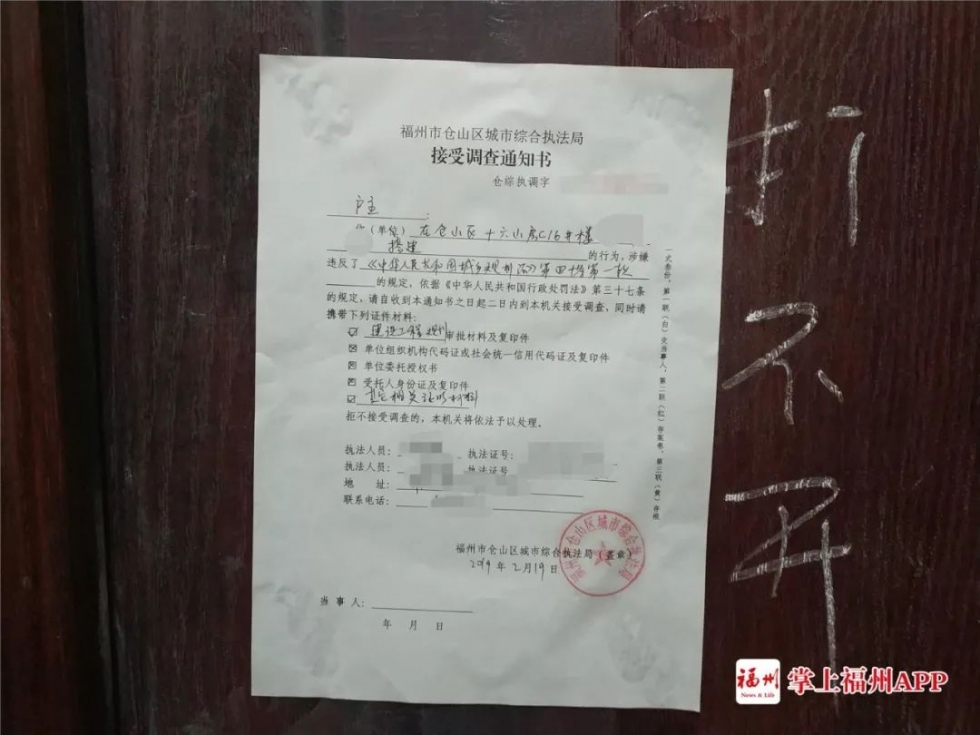 福州市仓山区城市综合执法局
接受调查通知书
仓综执调字
户主：
（单位）在仓山区十六山房C16#楼
搭建的行为，涉嫌
违反了《中华人民共和国城乡规划法》第四十条第一款
的规定，依据《中华人民共和国行政处罚法》第三十七条
的规定，请自收到本通知书之日起二日内到本机关接受调查，同时请
携带下列证件材料：
☑ 建设工程规划审批材料及复印件
☒ 单位组织机构代码证或社会统一信用代码证及复印件
☒ 单位委托授权书
☒ 受托人身份证及复印件
☑ 其它相关证明材料
拒不接受调查的，本机关将依法予以处理。
执法人员： 执法证号：
执法人员： 执法证号
地 址：
联系电话：
福州市仓山区城市综合执法局（盖章）
2019年2月19日
当事人：
年 月 日
一式叁份，第一联（白）交当事人，第二联（红）存案卷，第三联（黄）存根
打不开
福州
News & Life
掌上福州APP